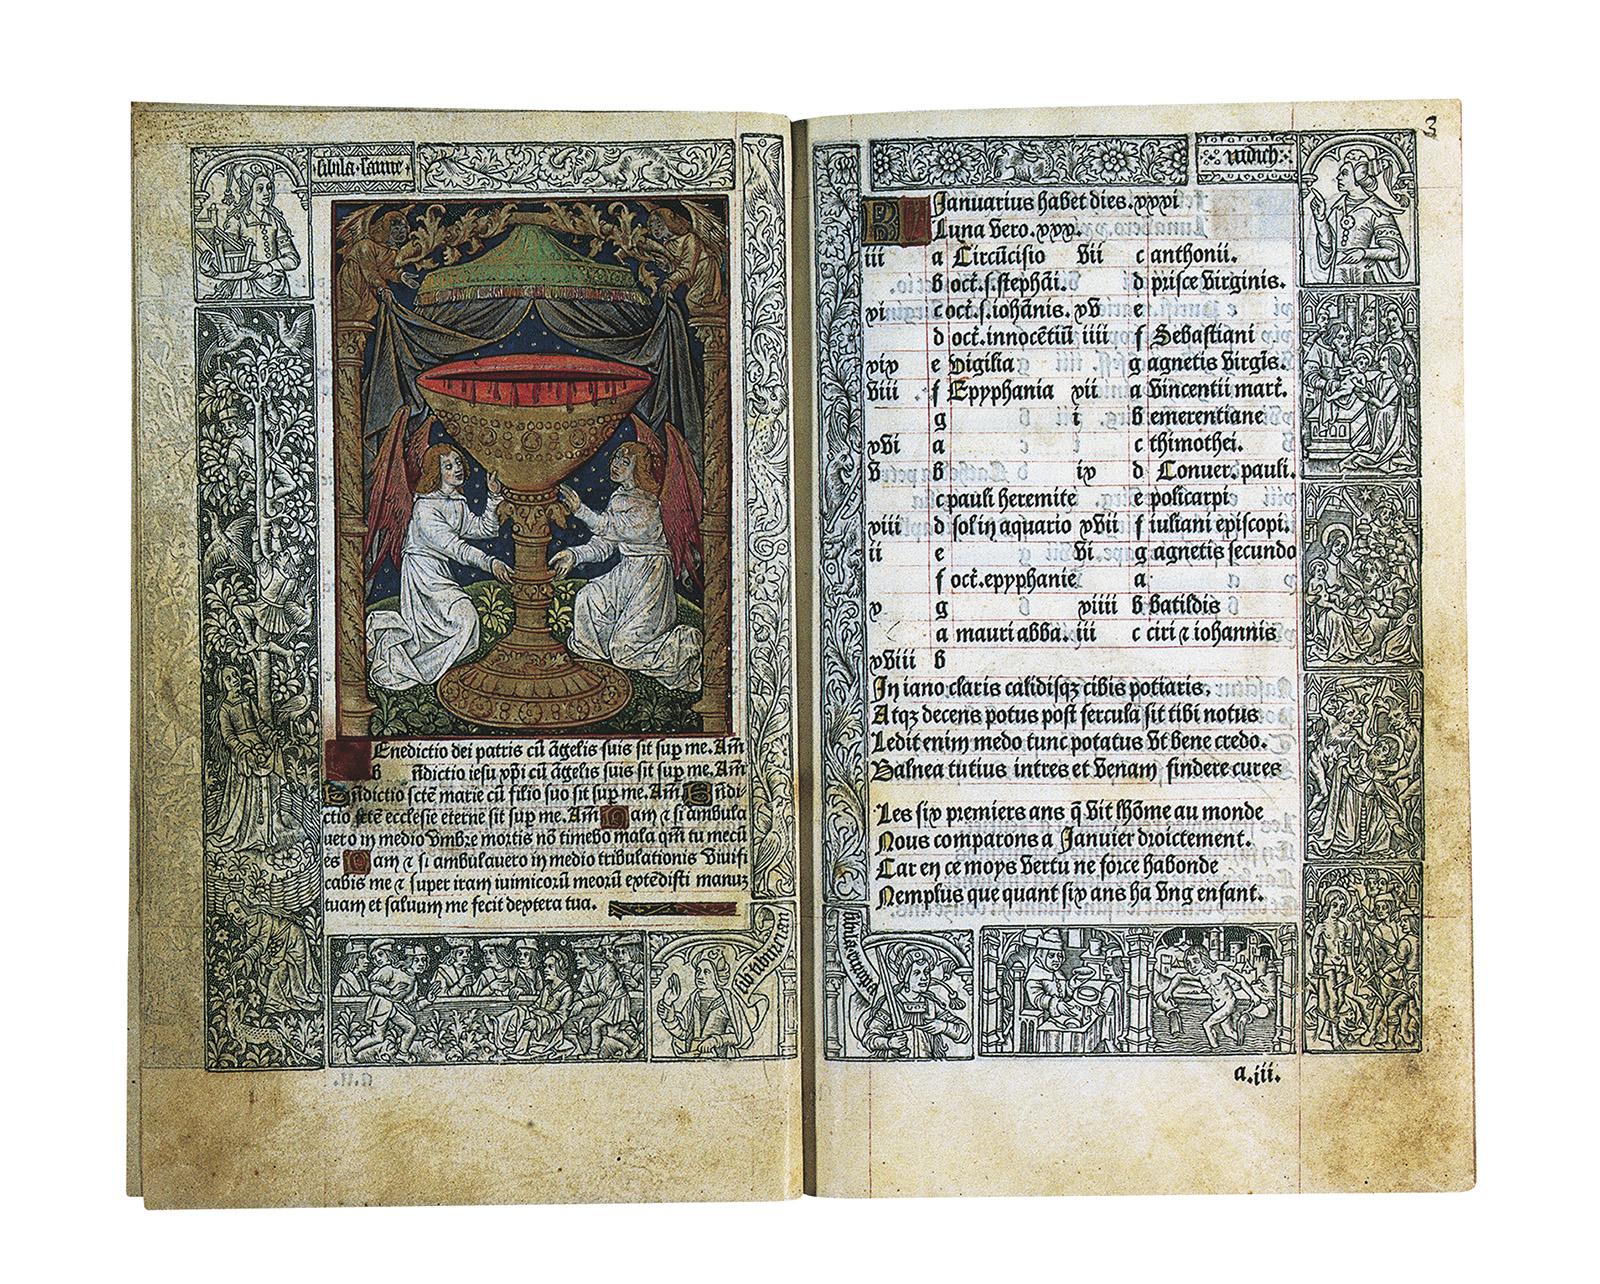 sibila
Enedictio dei patris cū āgelis suis sit sup me. Am̄
ndictio iesu xp̄i cū āgelis suis sit sup me. Am̄
Bn̄dictio scte marie cū filio suo sit sup me. Am̄ Bn̄di-
ctio scte ecclesie eterne sit sup me. Am̄ Nam ⁊ si ambula
uero in medio vmbre mortis nō timebo mala qm̄ tu mecū
es Nam ⁊ si ambulauero in medio tribulationis viuifi
cabis me ⁊ super iram inimicorū meorū extēdisti manuz
tuam et saluum me fecit dextera tua.
sib tiburtina
3
iudich
KL Januarius habet dies. xxxi
Luna vero. xxx.
iii a Circūcisio vii c anthonii.
b oct. s. stephāi. d prisce virginis.
xi c oct. s. iohānis. xv e
d oct. innocētiū iiii f Sebastiani
xix e vigilia g agnetis virgīs.
viii f Epyphania xii a Vincentii mart.
g i b emerentiane
xvi a c thimothei.
v b ix d Conuer. pauli.
c pauli heremite e policarpi
xiii d sol in aquario xvii f iuliani episcopi.
ii e vi g agnetis secundo
f oct. epyphanie a
x g xiiii b batildis
a mauri abba. iii c ciri ⁊ iohannis
xviii b
In iano claris calidisqz cibis potiaris.
Atqz decens potus post fercula sit tibi notus
Ledit enim medo tunc potatus vt bene credo.
Balnea tutius intres et venam findere cures
Les six premiers ans q̄ vit lhōme au monde
Nous comparons a Januier droictement.
Car en ce moys vertu ne force habonde
Nemplus que quant six ans ha vng enfant.
a.iii.